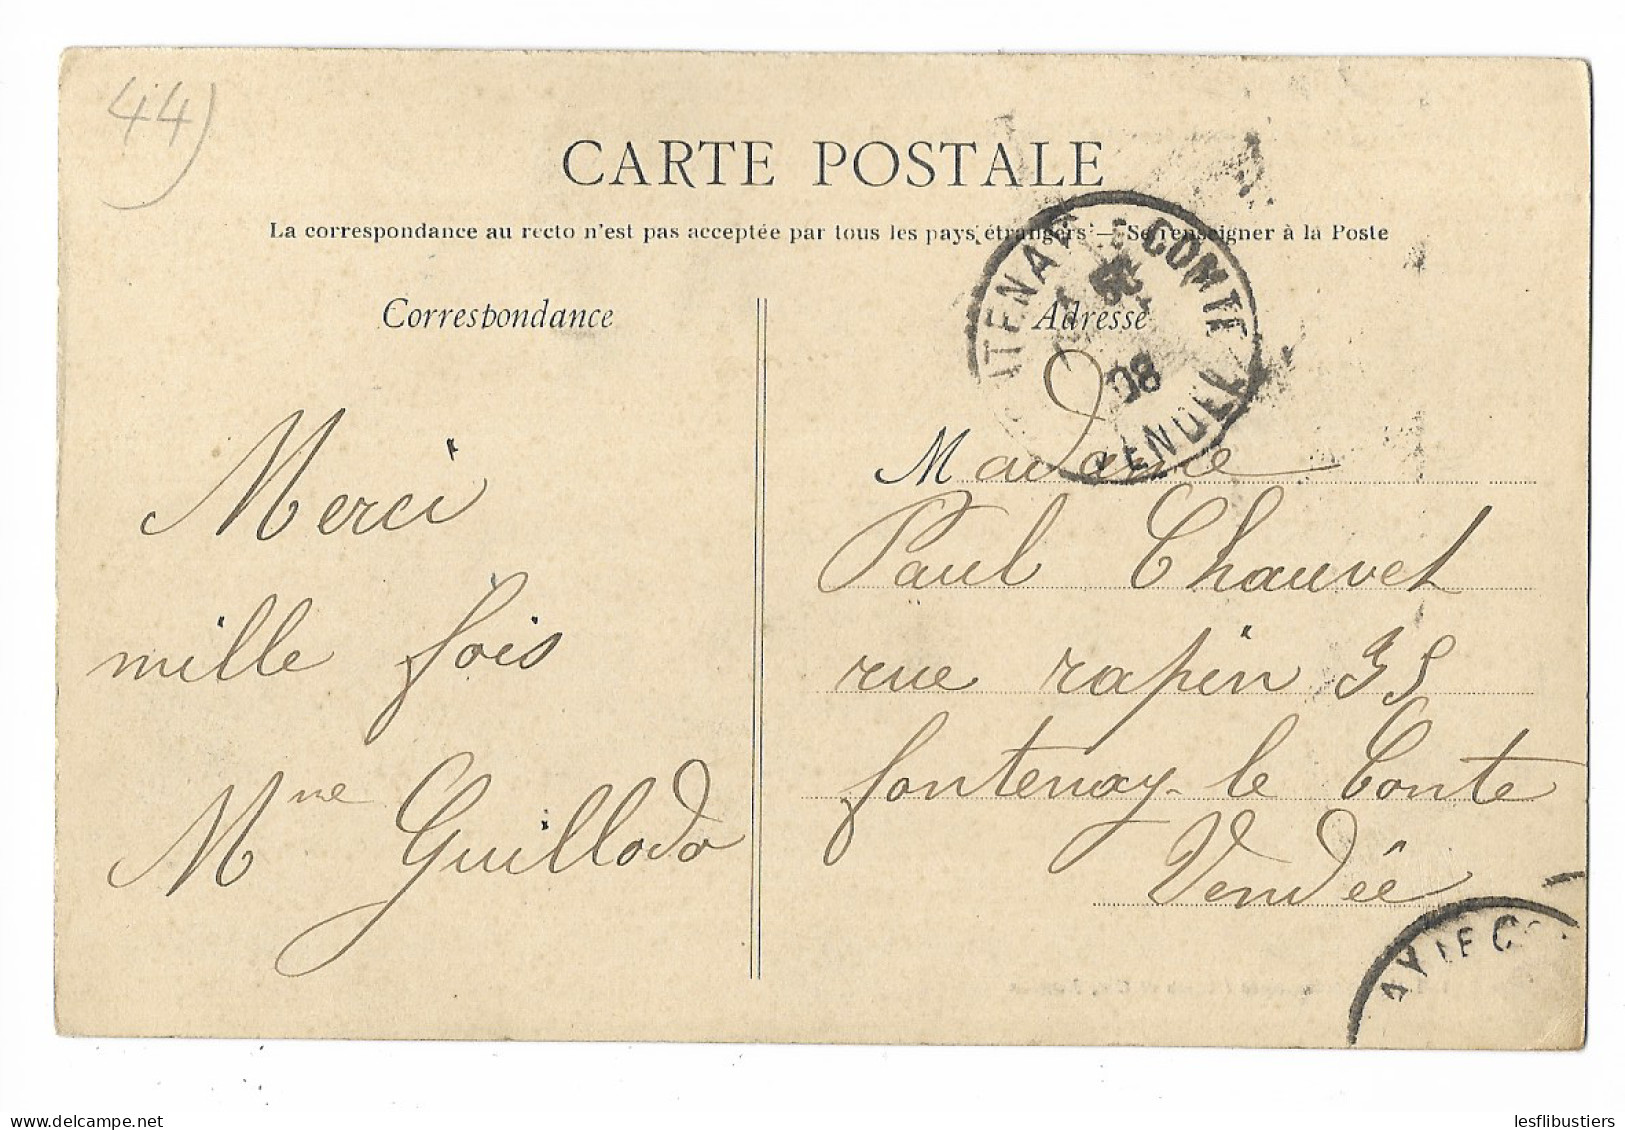 44)
CARTE POSTALE
La correspondance au recto n'est pas acceptée par tous les pays étrangers — Se renseigner à la Poste
Correspondance
Merci
mille fois
Mme Guillodo
Adresse
Madame
Paul Chauvet
rue rapin 35
fontenay-le Conte
Vendée
TENAY LE COMTE
08
VENDEE
AY LE CO
delcampe.net
lesflibustiers